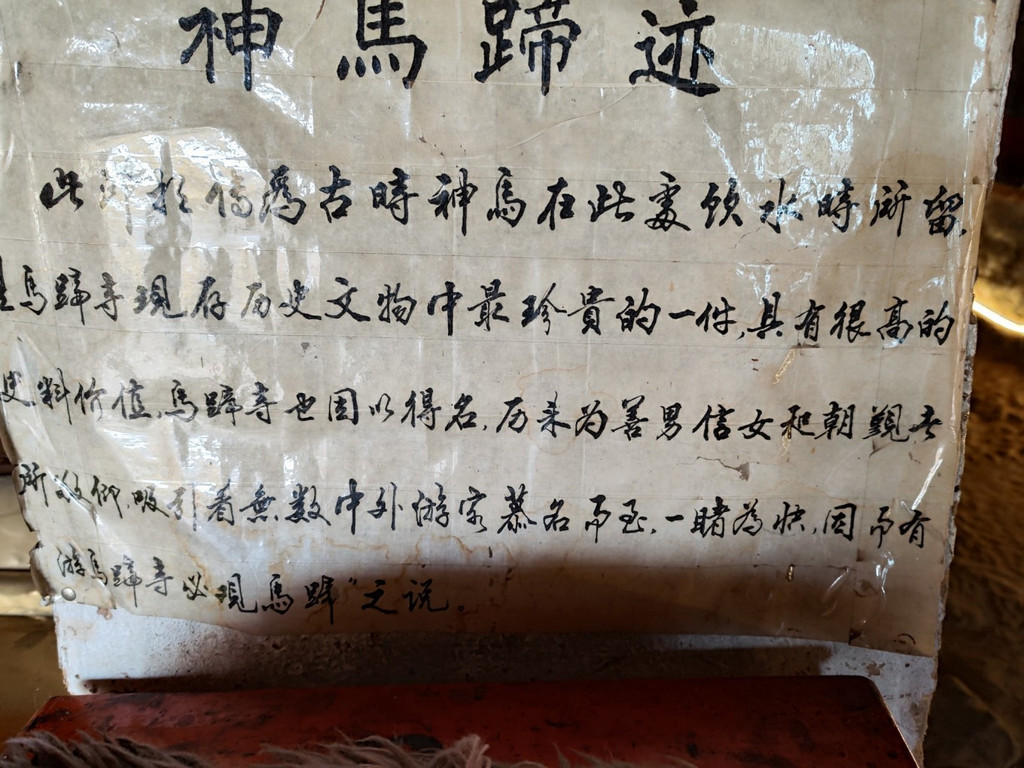 神馬蹄迹
此蹄相傳爲古時神馬在此處饮水時所留,
是馬蹄寺現存历史文物中最珍貴的一件,具有很高的
史料价值,馬蹄寺也因以得名,历来为善男信女和朝觐者
所敬仰,吸引着無数中外游客慕名而至,一睹為快,因而有
游馬蹄寺必观馬蹄”之说。